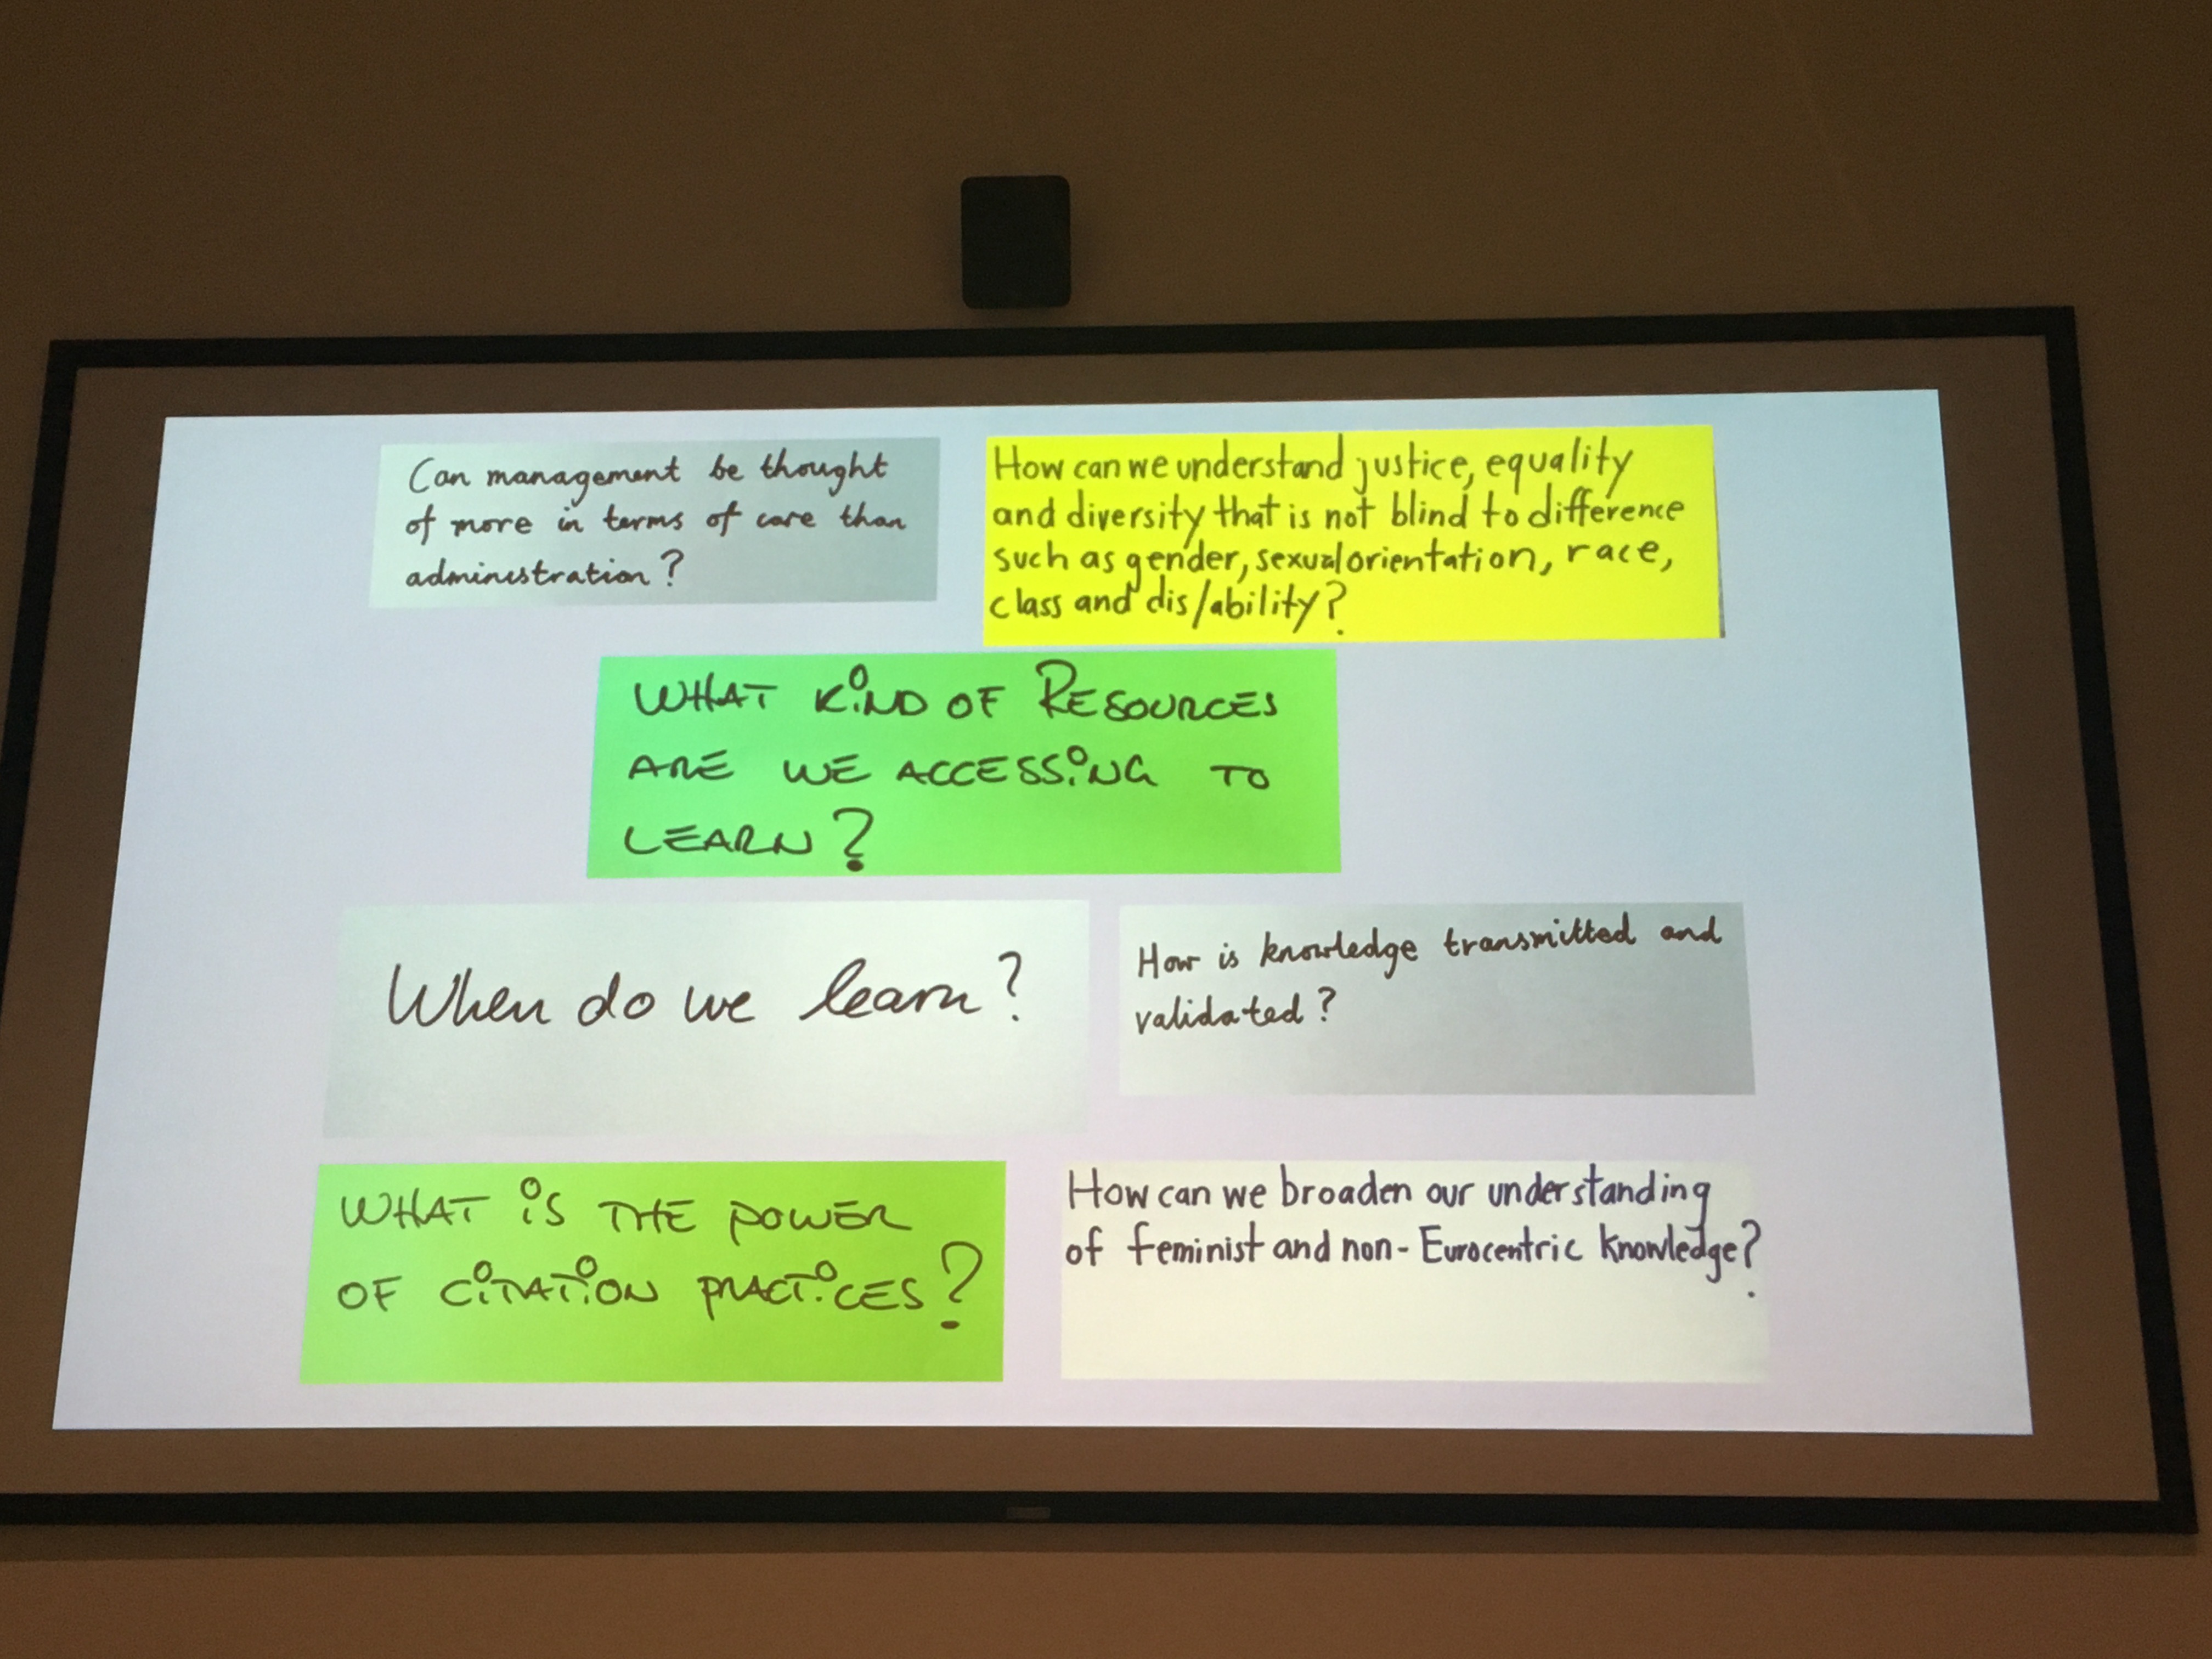 Can management be thought
of more in terms of care than
administration?
How can we understand justice, equality
and diversity that is not blind to difference
such as gender, sexual orientation, race,
class and dis/ability?
WHAT KiND OF RESOURCES
ARE WE ACCESSiNG TO
LEARN?
When do we learn?
How is knowledge transmitted and
validated?
WHAT iS THE POWER
OF CiTATiON PRACTiCES?
How can we broaden our understanding
of feminist and non-Eurocentric knowledge?